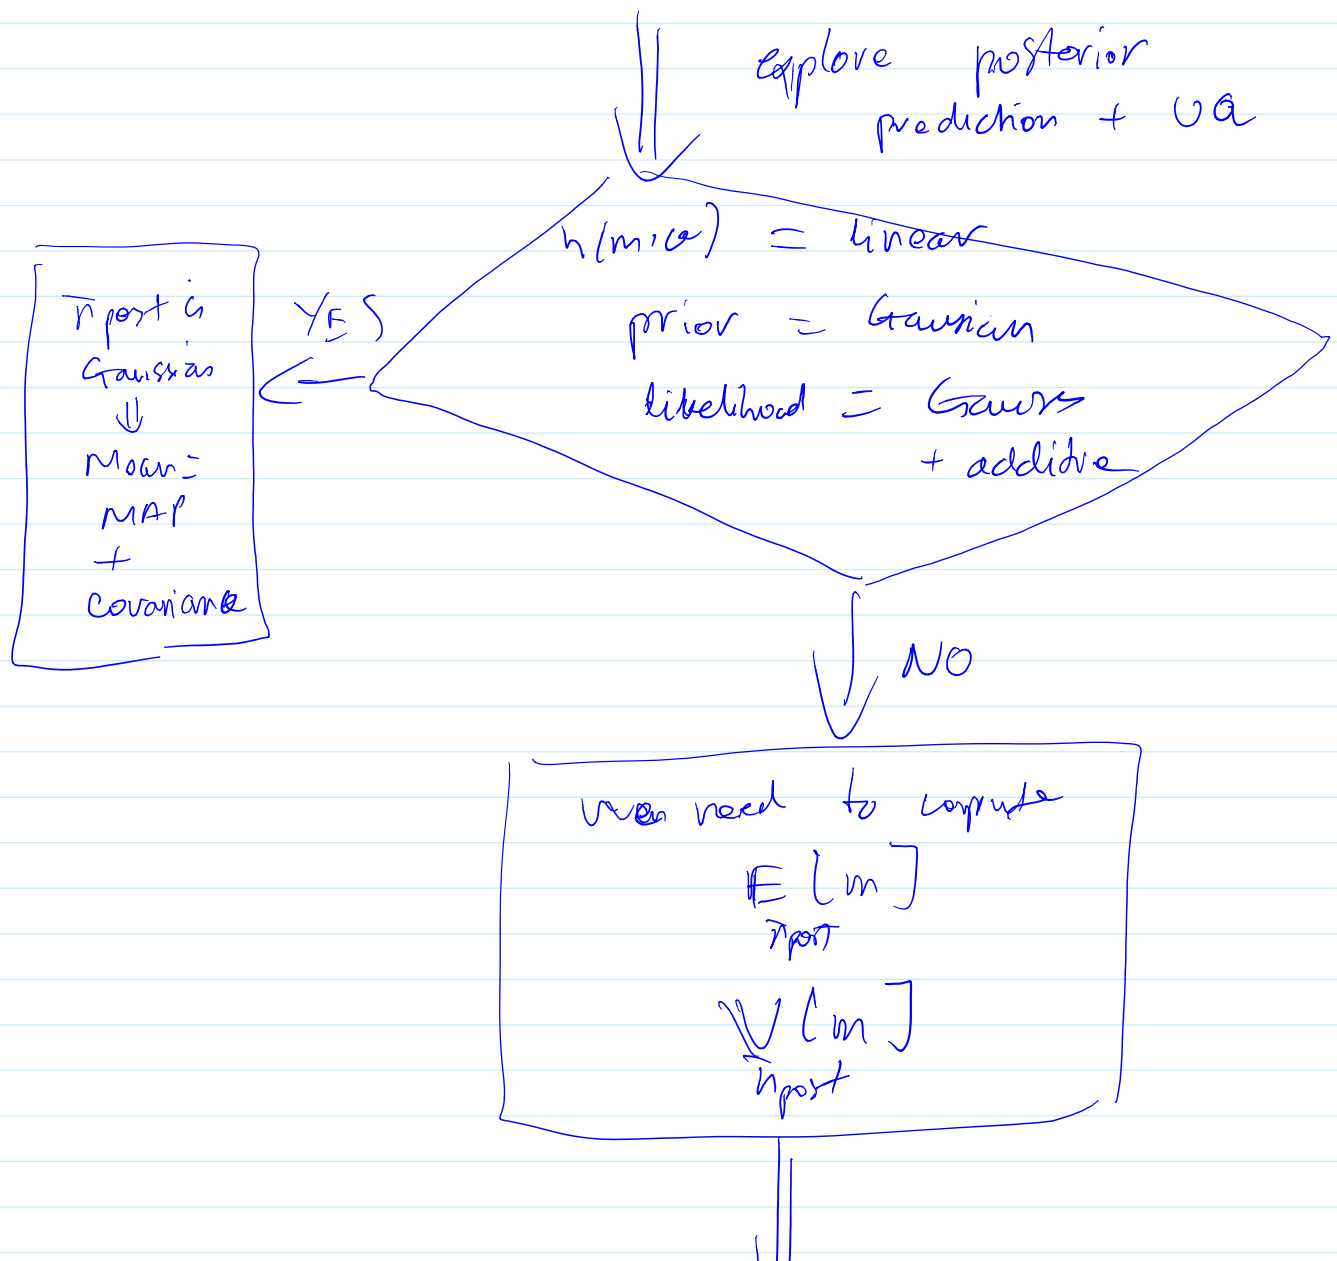 explore posterior
prediction + UQ
h(m; ω) = linear
prior = Gaussian
likelihood = Gauss
+ additive
YES
π post is
Gaussian
⇓
Mean =
MAP
+
covariance
NO
need to compute
𝔼 [m]
πpost
𝕍 [m]
πpost